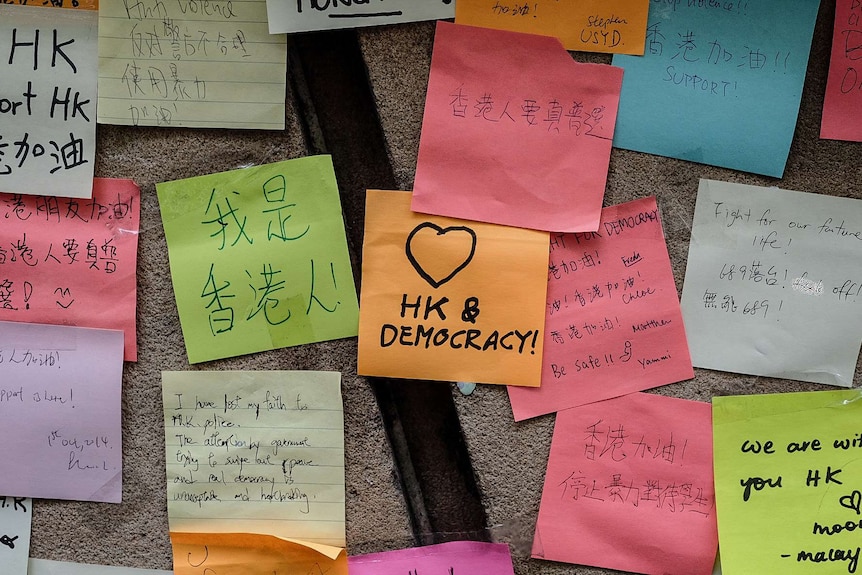 HK
HK
加油
反對警方不合理
使用暴力
加油!
加油!
Stephen
USYD.
香港人要真普選
香港加油!!
SUPPORT!
港朋友加油!
香港人要真普
我是
香港人!
HK &
DEMOCRACY!
FOR DEMOCRACY
港加油!
油! 香港加油!
Chloe
香港加油!
Be safe!!
Yammi
Fight for our future
life!
689落台!
無能689!
人加油!
1st Oct, 2014.
I have lost my faith to
HK police.
The by government
trying to out peace
and real democracy is
unacceptable and heartbreaking.
香港加油!
停止暴力對待學生
we are wit
you HK
- malay